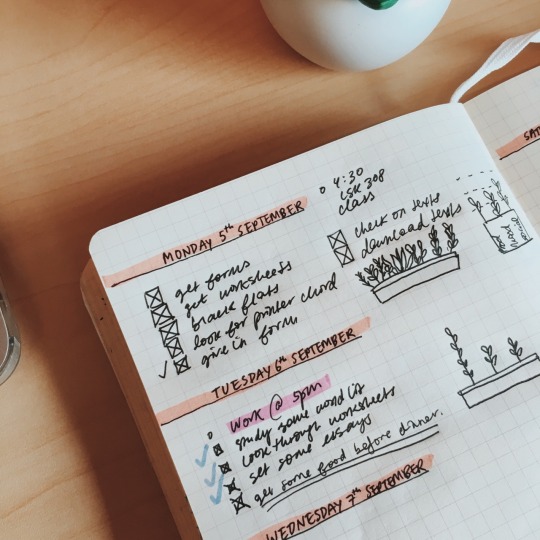 MONDAY 5th SEPTEMBER
get forms
get worksheets
black flats
look for printer chord
give in form
4:30
LSK 308
class
check on texts
download texts
TUESDAY 6th SEPTEMBER
WORK @ 5pm
study some world lit
look through worksheets
set some essays
get some food before dinner.
WEDNESDAY 7th SEPTEMBER
SAT